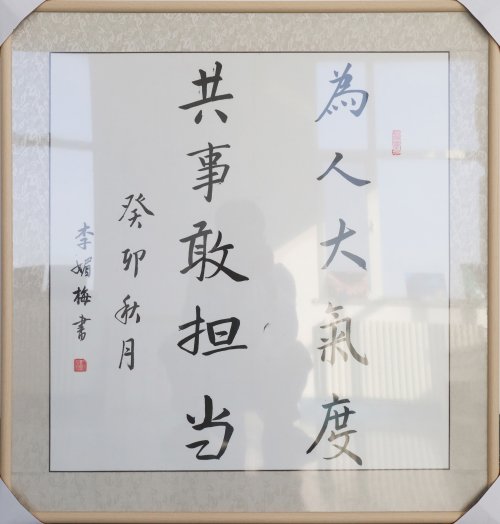 為人大氣度
共事敢担当
癸卯秋月
李媚梅書